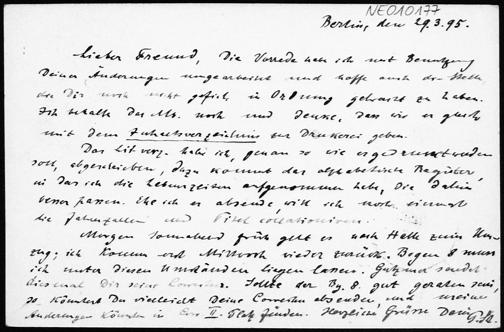 NE010177
Berlin, den 29.3.95.
Lieber Freund, Die Vorrede habe ich mit Benutzung
Deiner Änderungen umgearbeitet und hoffe auch die Stelle,
die Dir noch nicht gefiel, in Ordnung gebracht zu haben.
Ich behalte das Ms. noch und denke, dass wir es gleich
mit dem Inhaltsverzeichnis zur Druckerei geben.
Das Lit.verz. habe ich, genau so wie es gedruckt werden
soll, abgeschrieben, dazu kommt das alphabetische Register,
in das ich die Lebenszeiten aufgenommen habe, die dahin
besser passen. Ehe ich es absende, will ich noch einmal
die Jahreszahlen und Titel collationieren.
Morgen Sonnabend früh geht es nach Halle zum
Umzug; ich komme erst Mittwoch wieder zurück. Bogen 8 muss
ich unter diesen Umständen liegen lassen. sendet
diesmal Dir seine Correctur. Sollte der Bg. 8. gut geraten sein,
so könntest Du vielleicht Deine Correctur absenden, und meine
Änderungen könnten in II. Platz finden. Herzliche Grüsse Dein